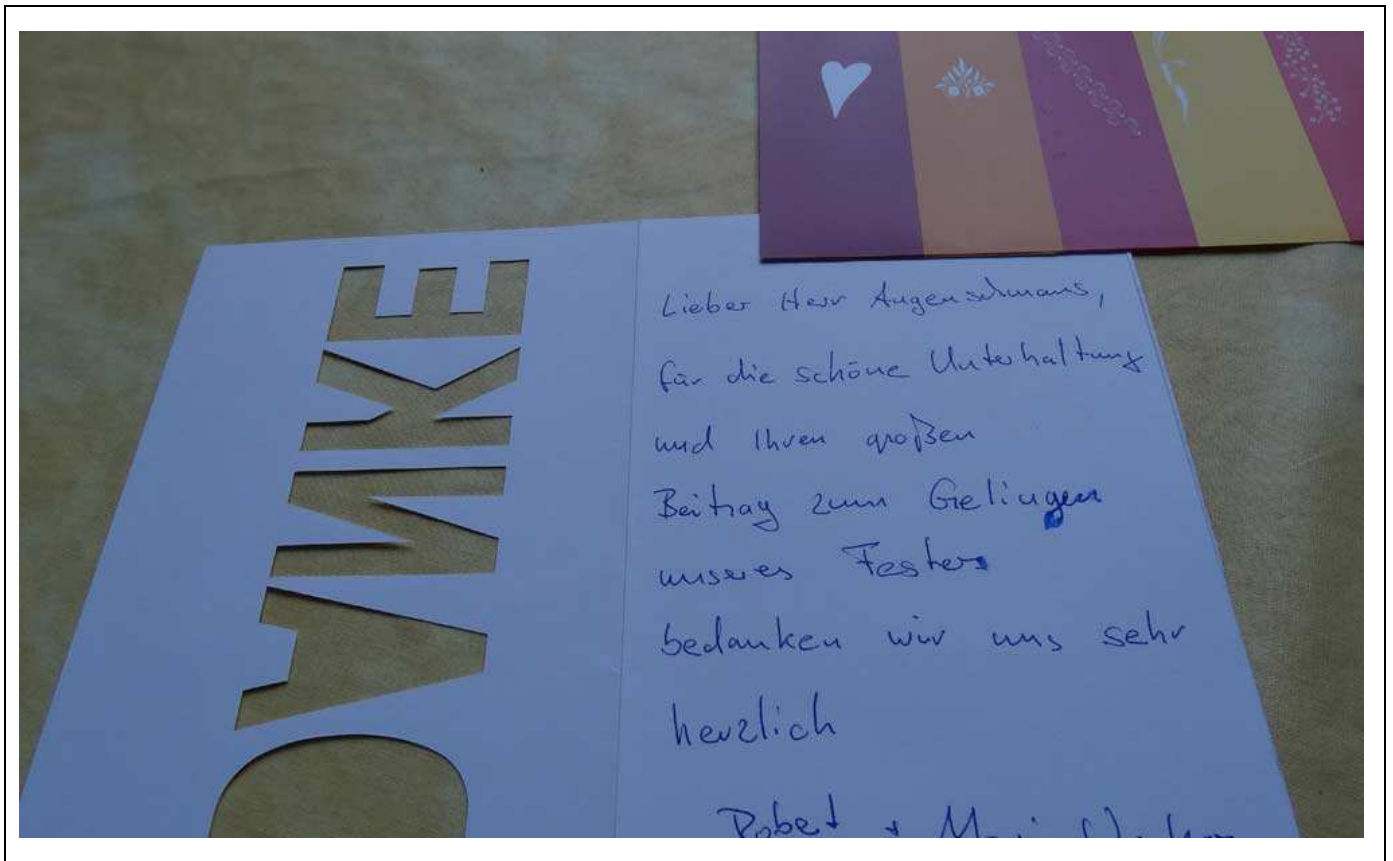 DANKE
Lieber Herr Augenschmaus,
für die schöne Unterhaltung
und Ihren großen
Beitrag zum Gelingen
unseres Festes
bedanken wir uns sehr
herzlich
Robert +